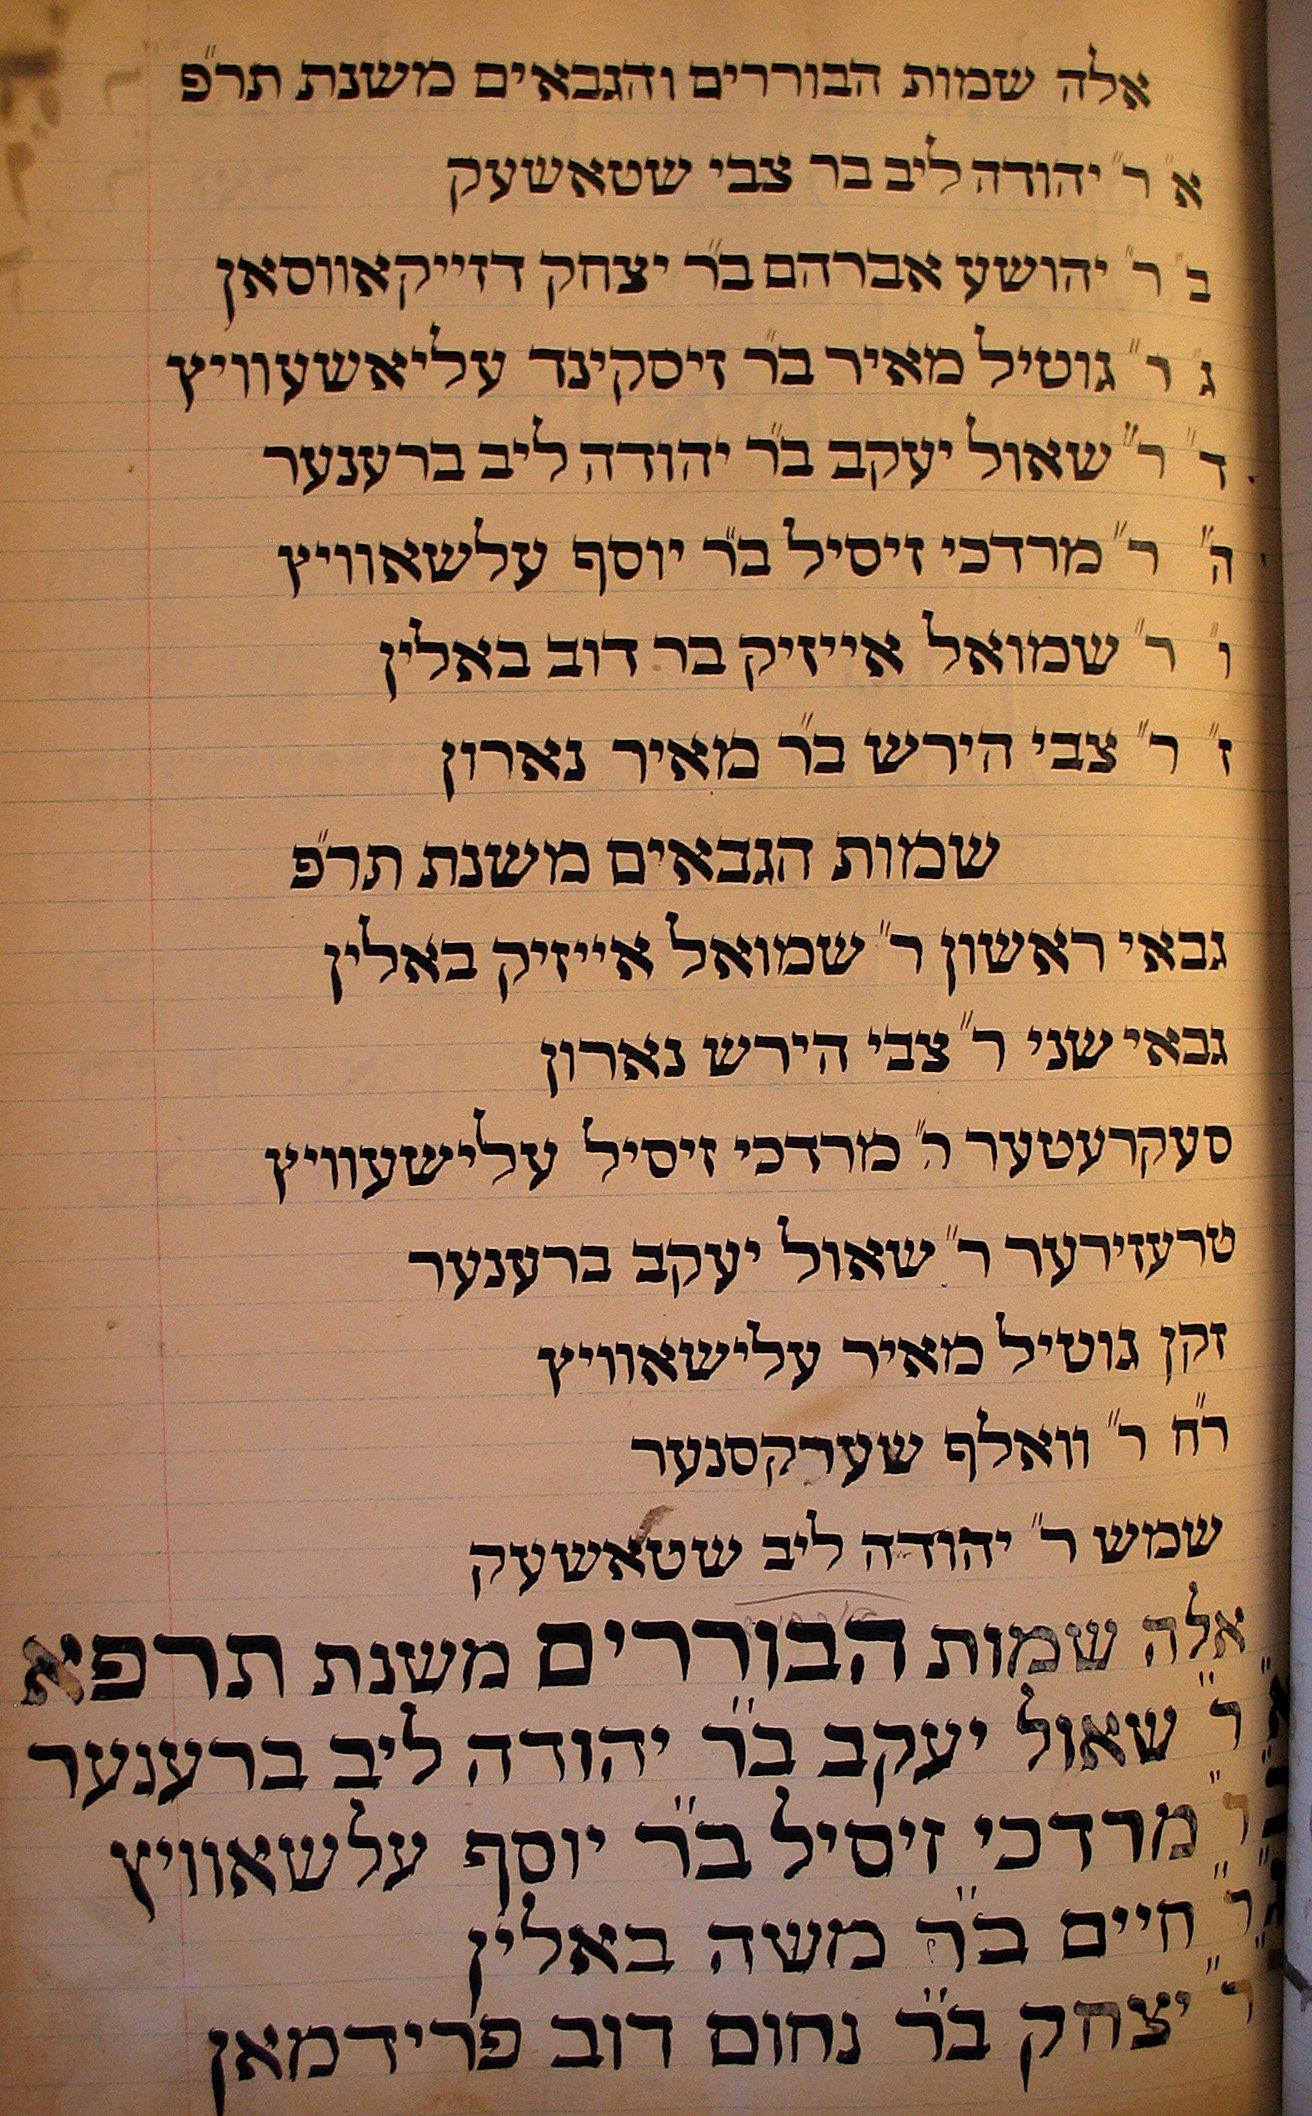 אלה שמות הבוררים והגבאים משנת תר״פ
א״ ר״ יהודה ליב בר צבי שטאשעק
ב״ ר״ יהושע אברהם ב״ר יצחק דזייקאווסאן
ג״ ר״ גוטיל מאיר ב״ר זיסקינד עליאשעוויץ
ד״ ר״ שאול יעקב ב״ר יהודה ליב ברענער
ה״ ר״ מרדכי זיסיל ב״ר יוסף עלשאוויץ
ו״ ר״ שמואל אייזיק בר דוב באלין
ז״ ר״ צבי הירש ב״ר מאיר נארון
שמות הגבאים משנת תר״פ
גבאי ראשון ר״ שמואל אייזיק באלין
גבאי שני ר״ צבי הירש נארון
סעקרעטער ר״ מרדכי זיסיל עלישעוויץ
טרעזירער ר״ שאול יעקב ברענער
זקן גוטיל מאיר עלישאוויץ
ר״ח ר״ וואלף שערקסנער
שמש ר״ יהודה ליב שטאשעק
אלה שמות הבוררים משנת תרפא
א״ ר״ שאול יעקב ב״ר יהודה ליב ברענער
ב״ ר״ מרדכי זיסיל ב״ר יוסף עלשאוויץ
ג״ ר״ חיים ב״ר משה באלין
ר״ יצחק ב״ר נחום דוב פרידמאן